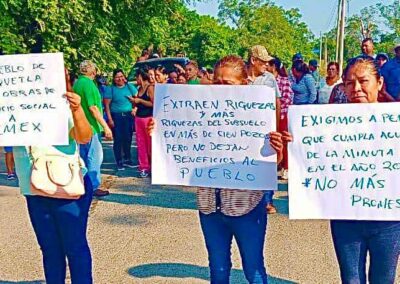 EBLO DE
QUETLA
OBRAS DE
CIO SOCIAL A
MEX
EXTRAEN RIQUEZAS
Y MÁS
RIQUEZAS DEL SUBSUELO
EN MÁS DE CIEN POZO
PERO NO DEJAN
BENEFICIOS AL
PUEBLO
EXIGIMOS A PE
QUE CUMPLA AC
DE LA MINUTA
EN EL AÑO 20
# NO MÁS
PROMES